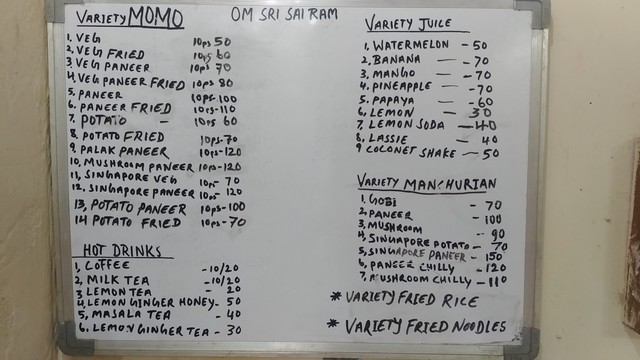 OM SRI SAI RAM
VARIETY MOMO
1. VEG 10ps 50
2. VEG FRIED 10ps 60
3. VEG PANEER 10ps 70
4. VEG PANEER FRIED 10ps 80
5. PANEER 10ps-100
6. PANEER FRIED 10ps-110
7. POTATO - 10ps 60
8. POTATO FRIED 10ps-70
9. PALAK PANEER 10ps-120
10. MUSHROOM PANEER 10ps-120
11. SINGAPORE VEG 10ps- 70
12. SINGAPORE PANEER 10ps- 120
13, POTATO PANEER 10ps-100
14 POTATO FRIED 10ps-70
HOT DRINKS
1, COFFEE -10/20
2, MILK TEA -10/20
3 LEMON TEA - 20
4 LEMON GINGER HONEY- 50
5, MASALA TEA - 40
6. LEMON GINGER TEA - 30
VARIETY JUICE
1. WATERMELON - 50
2. BANANA - 70
3, MANGO - 70
4. PINEAPPLE - 70
5. PAPAYA - 60
6, LEMON - 30
7. LEMON SODA - 40
8. LASSIE - 40
9 COCONET SHAKE - 50
VARIETY MANCHURIAN
1. GOBI - 70
2. PANEER - 100
3, MUSHROOM - 90
4. SINGAPORE POTATO - 70
5, SINGAPORE PANEER - 150
6, PANEER CHILLY - 120
7, MUSHROOM CHILLY - 110
* VARIETY FRIED RICE
* VARIETY FRIED NOODLES